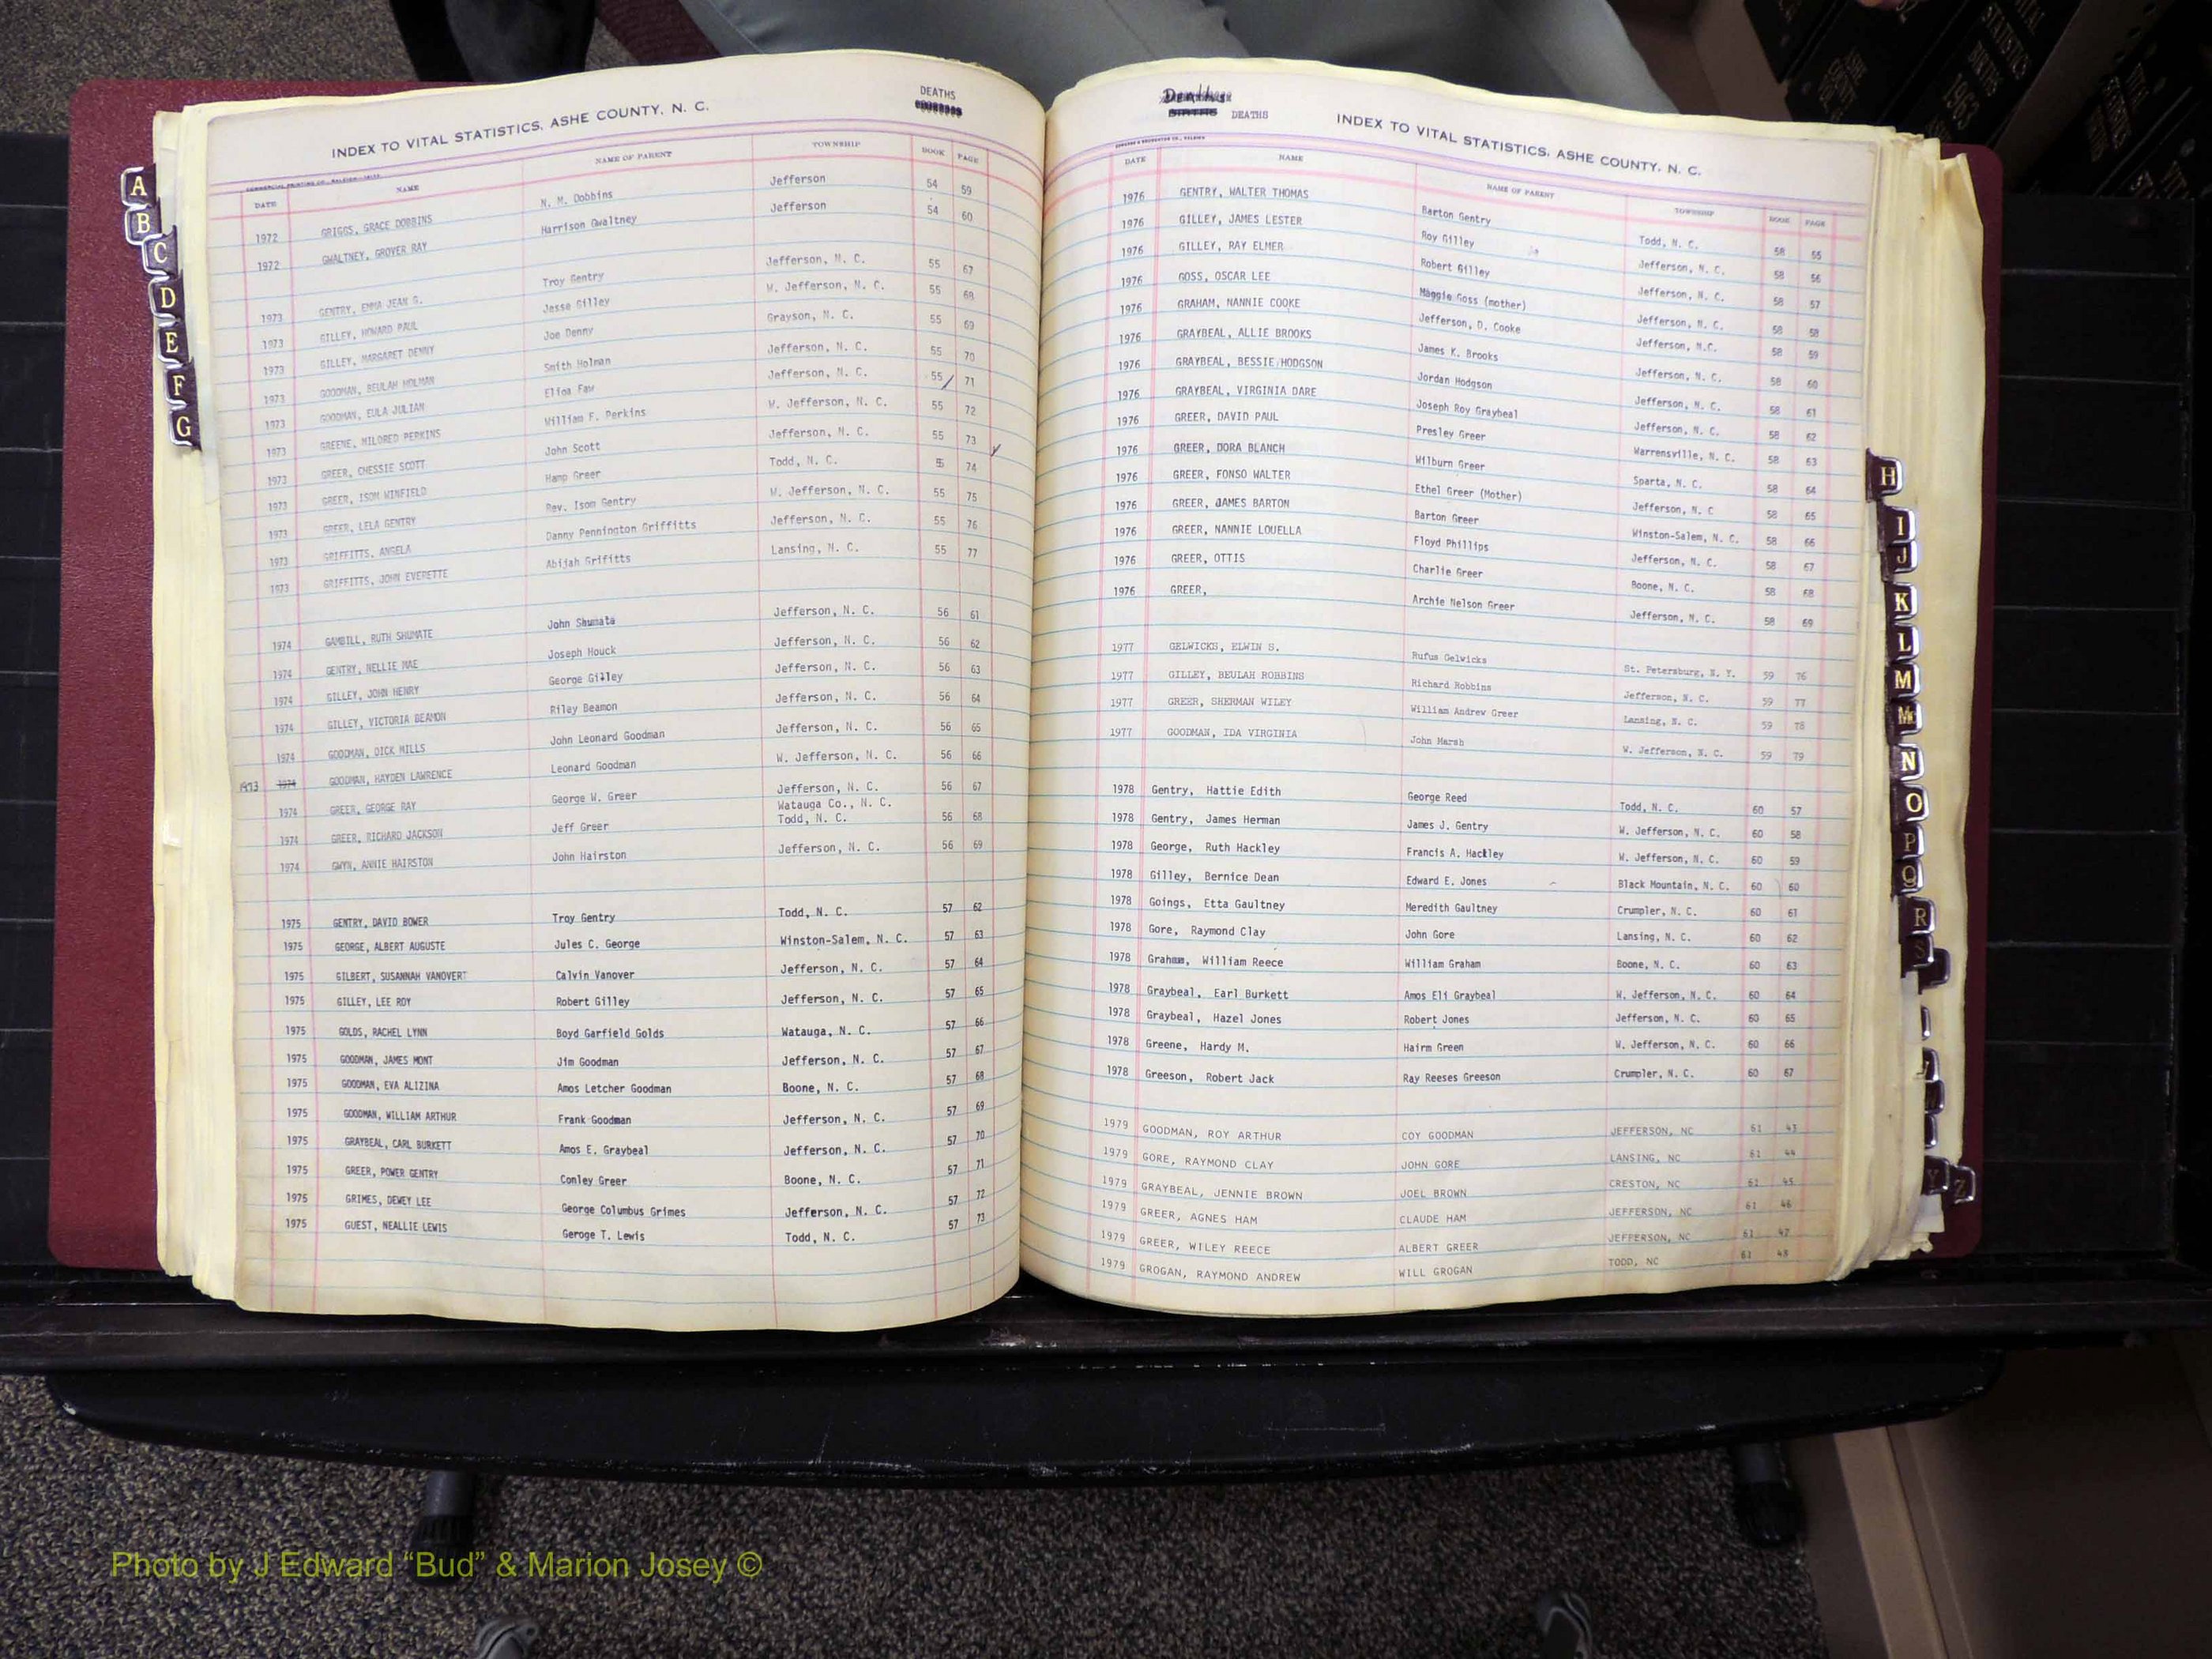 DEATHS
INDEX TO VITAL STATISTICS, ASHE COUNTY, N. C.
DATE NAME NAME OF PARENT TOWNSHIP BOOK PAGE
1972 GRIGGS, GRACE DOBBINS N. M. Dobbins Jefferson 54 59
1972 GWALTNEY, GROVER RAY Harrison Gwaltney Jefferson 54 60
1973 GENTRY, EMMA JEAN G. Troy Gentry Jefferson, N. C. 55 67
1973 GILLEY, HOWARD PAUL Jesse Gilley W. Jefferson, N. C. 55 68
1973 GILLEY, MARGARET DENNY Joe Denny Grayson, N. C. 55 69
1973 GOODMAN, BEULAH HOLMAN Smith Holman Jefferson, N. C. 55 70
1973 GOODMAN, EULA JULIAN Jefferson, N. C. 55 71
1973 GREENE, MILDRED PERKINS William F. Perkins W. Jefferson, N. C. 55 72
1973 GREER, CHESSIE SCOTT John Scott Jefferson, N. C. 55 73
1973 GREER, ISOM WINFIELD Hamp Greer Todd, N. C. 74
1973 GREER, LELA GENTRY Rev. Isom Gentry W. Jefferson, N. C. 55 75
1973 GRIFFITTS, ANGELA Danny Pennington Griffitts Jefferson, N. C. 55 76
1973 GRIFFITTS, JOHN EVERETTE Abijah Griffitts Lansing, N. C. 55 77
1974 GAMBILL, RUTH SHUMATE John Shumate Jefferson, N. C. 56 61
1974 GENTRY, NELLIE MAE Joseph Houck Jefferson, N. C. 56 62
1974 GILLEY, JOHN HENRY George Gilley Jefferson, N. C. 56 63
1974 GILLEY, VICTORIA BEAMON Riley Beamon Jefferson, N. C. 56 64
1974 GOODMAN, DICK MILLS John Leonard Goodman Jefferson, N. C. 56 65
1973 1974 GOODMAN, HAYDEN LAWRENCE Leonard Goodman W. Jefferson, N. C. 56 66
1974 GREER, GEORGE RAY George W. Greer Jefferson, N. C. 56 67
Watauga Co., N. C.
1974 GREER, RICHARD JACKSON Jeff Greer Todd, N. C. 56 68
1974 GWYN, ANNIE HAIRSTON John Hairston Jefferson, N. C. 56 69
1975 GENTRY, DAVID BOWER Troy Gentry Todd, N. C. 57 62
1975 GEORGE, ALBERT AUGUSTE Jules C. George Winston-Salem, N. C. 57 63
1975 GILBERT, SUSANNAH VANOVERT Calvin Vanover Jefferson, N. C. 57 64
1975 GILLEY, LEE ROY Robert Gilley Jefferson, N. C. 57 65
1975 GOLDS, RACHEL LYNN Boyd Garfield Golds Watauga, N. C. 57 66
1975 GOODMAN, JAMES MONT Jim Goodman Jefferson, N. C. 57 67
1975 GOODMAN, EVA ALIZINA Amos Letcher Goodman Boone, N. C. 57 68
1975 GOODMAN, WILLIAM ARTHUR Frank Goodman Jefferson, N. C. 57 69
1975 GRAYBEAL, CARL BURKETT Amos E. Graybeal Jefferson, N. C. 57 70
1975 GREER, POWER GENTRY Conley Greer Boone, N. C. 57 71
1975 GRIMES, DEWEY LEE George Columbus Grimes Jefferson, N. C. 57 72
1975 GUEST, NEALLIE LEWIS Geroge T. Lewis Todd, N. C. 57 73
Deaths
BIRTHS DEATHS
INDEX TO VITAL STATISTICS, ASHE COUNTY, N. C.
DATE NAME NAME OF PARENT TOWNSHIP BOOK PAGE
1976 GENTRY, WALTER THOMAS Barton Gentry Todd, N. C. 58 55
1976 GILLEY, JAMES LESTER Roy Gilley Jefferson, N. C. 58 56
1976 GILLEY, RAY ELMER Robert Gilley Jefferson, N. C. 58 57
1976 GOSS, OSCAR LEE Maggie Goss (mother) Jefferson, N. C. 58 58
1976 GRAHAM, NANNIE COOKE Jefferson, D. Cooke Jefferson, N.C. 58 59
1976 GRAYBEAL, ALLIE BROOKS James K. Brooks Jefferson, N. C. 58 60
1976 GRAYBEAL, BESSIE HODGSON Jordan Hodgson Jefferson, N. C. 58 61
1976 GRAYBEAL, VIRGINIA DARE Joseph Roy Graybeal Jefferson, N. C. 58 62
1976 GREER, DAVID PAUL Presley Greer Warrensville, N. C. 58 63
1976 GREER, DORA BLANCH Wilburn Greer Sparta, N. C. 58 64
1976 GREER, FONSO WALTER Ethel Greer (Mother) Jefferson, N. C 58 65
1976 GREER, JAMES BARTON Barton Greer Winston-Salem, N. C. 58 66
1976 GREER, NANNIE LOUELLA Floyd Phillips Jefferson, N. C. 58 67
1976 GREER, OTTIS Charlie Greer Boone, N. C. 58 68
1976 GREER, Archie Nelson Greer Jefferson, N. C. 58 69
1977 GELWICKS, ELWIN S. Rufus Gelwicks St. Petersburg, N. Y. 59 76
1977 GILLEY, BEULAH ROBBINS Richard Robbins Jefferson, N. C. 59 77
1977 GREER, SHERMAN WILEY William Andrew Greer Lansing, N. C. 59 78
1977 GOODMAN, IDA VIRGINIA John Marsh W. Jefferson, N. C. 59 79
1978 Gentry, Hattie Edith George Reed Todd, N. C. 60 57
1978 Gentry, James Herman James J. Gentry W. Jefferson, N. C. 60 58
1978 George, Ruth Hackley Francis A. Hackley W. Jefferson, N. C. 60 59
1978 Gilley, Bernice Dean Edward E. Jones Black Mountain, N. C. 60 60
1978 Goings, Etta Gaultney Meredith Gaultney Crumpler, N. C. 60 61
1978 Gore, Raymond Clay John Gore Lansing, N. C. 60 62
1978 Graham, William Reece William Graham Boone, N. C. 60 63
1978 Graybeal, Earl Burkett Amos Eli Graybeal W. Jefferson, N. C. 60 64
1978 Graybeal, Hazel Jones Robert Jones Jefferson, N. C. 60 65
1978 Greene, Hardy M. Hairm Green W. Jefferson, N. C. 60 66
1978 Greeson, Robert Jack Ray Reeses Greeson Crumpler, N. C. 60 67
1979 GOODMAN, ROY ARTHUR COY GOODMAN JEFFERSON, NC 61 43
1979 GORE, RAYMOND CLAY JOHN GORE LANSING, NC 61 44
1979 GRAYBEAL, JENNIE BROWN JOEL BROWN CRESTON, NC 61 45
1979 GREER, AGNES HAM CLAUDE HAM JEFFERSON, NC 61 46
1979 GREER, WILEY REECE ALBERT GREER JEFFERSON, NC 61 47
1979 GROGAN, RAYMOND ANDREW WILL GROGAN TODD, NC 61 48
A
B
C
D
E
F
G
H
I
J
K
L
M
Mc
N
O
P
Q
R
S
Y
Z
VITAL STATISTICS BIRTHS 1963
Photo by J Edward “Bud” & Marion Josey ©